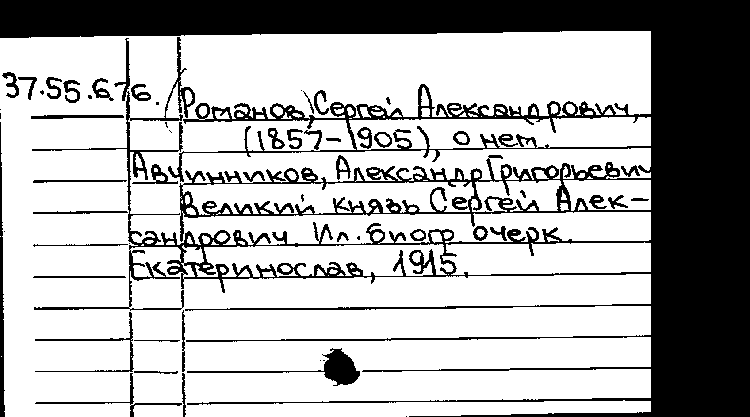 37.55.6.76. (Романов,) Сергей Александрович,
(1857-1905), о нем.
Авчинников, Александр Григорьевич
Великий князь Сергей Алек-
сандрович. Ил. биогр очерк.
Екатеринослав, 1915.